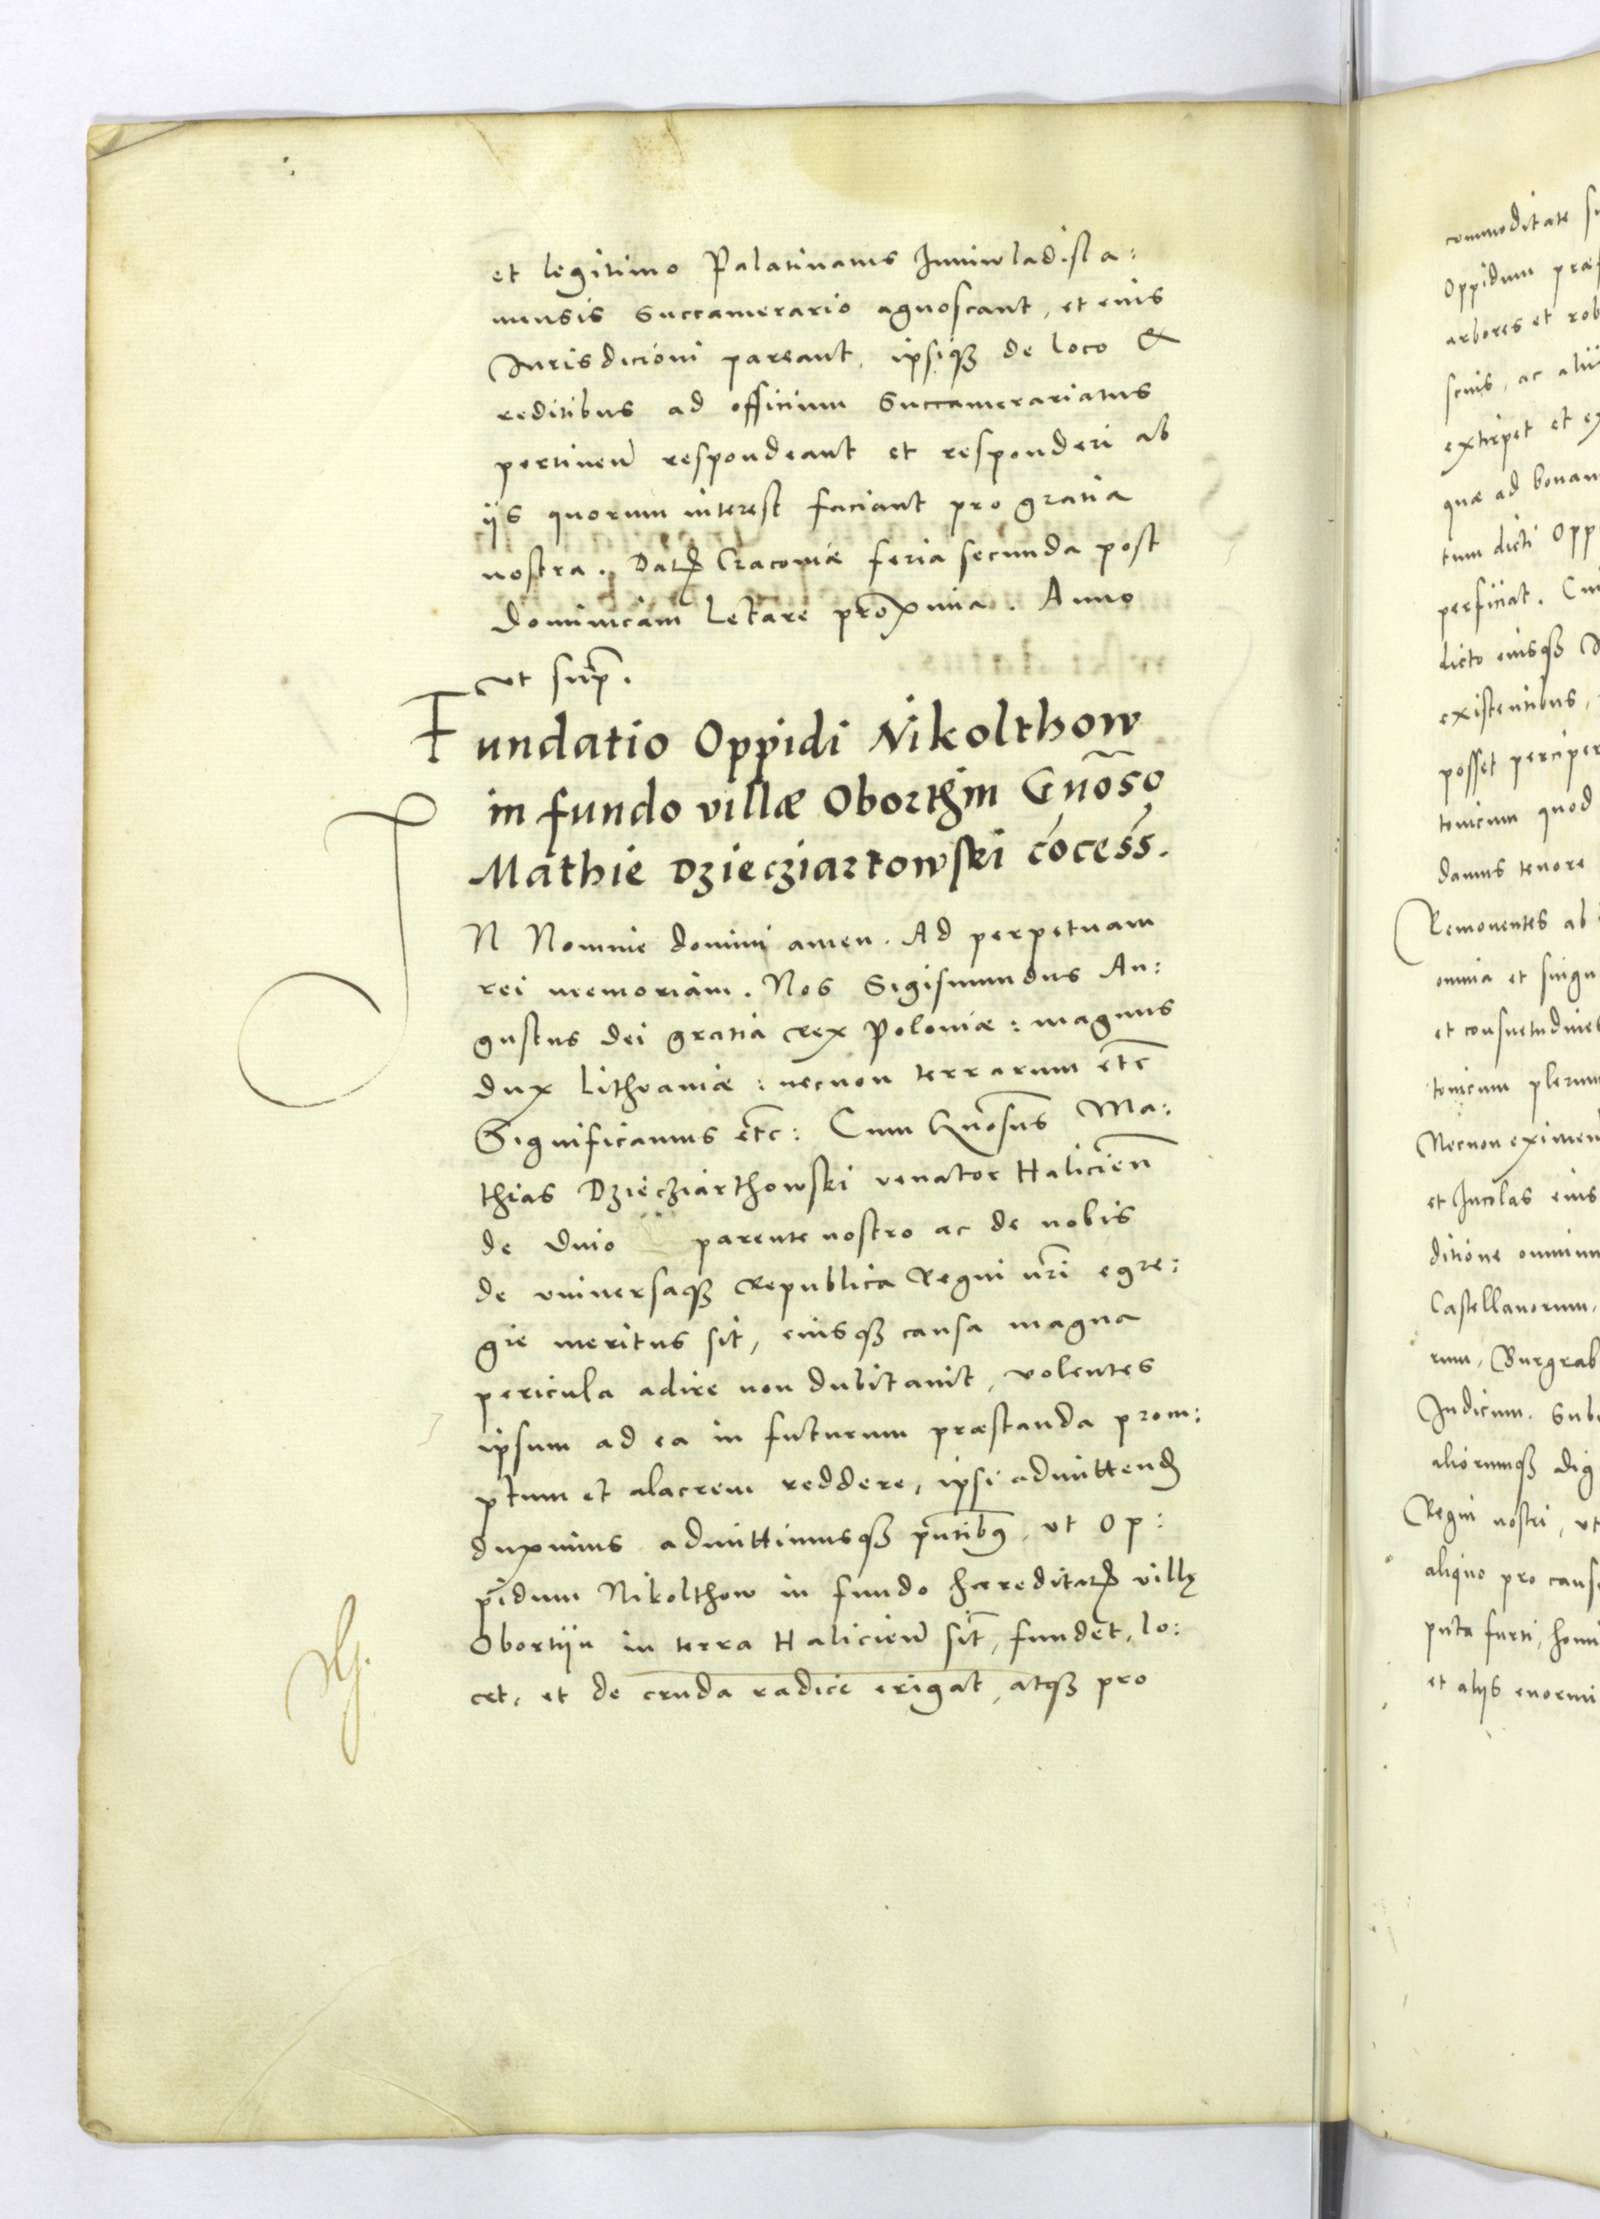 et legitimo Palatinatus Juniwladisla:
uiensis Succamerario agnoscant, et eius
Jurisdicioni pareant, ipsiqȝ de loco &
reditibus ad officium Succamerariatus
pertineñ respondeant et responderi ab
ijs quorum interest faciant pro gratia
nostra. Datꝝ Cracoviæ feria secunda post
dominicam letare proxima. Anno
ut supr̄.
Fundatio Oppidi Nikolthow
in fundo villæ Oborthin Gnōso
Mathie Dziecziartowski cōcess.
JN Nomine domini amen. Ad perpetuam
rei memoriam. Nos Sigismundus Au:
gustus dei gratia rex Poloniæ: magnus
dux Lithvaniæ: necnon terrarum etc̄
Significamus etc̄: Cum Gnōsus Ma:
thias Dziecziarthowski venator Halicieñ
de Diuo parente nostro ac de nobis
de vniuersaqȝ Republica Regni nr̄i egre:
gie meritus sit, eiusqȝ causa magna
pericula adire non dubitauit, volentes
ipsum ad ea in futurum præstanda prom:
ptum et alacrem reddere, ipsi admittendꝭ
duximus admittimusqȝ pn̄tibꝰ, ut Op:
pidum Nikolthow in fundo hæreditarꝭ villę
Obortijn in terra Halicieñ sit̄, fundet, lo:
cet, et de cruda radice erigat, atqȝ pro
commoditate
Oppidum
arbores et
ac
extirpet et
quæ ad
tum dicti
perficiat.
dicto eiusqȝ
existentibus,
posset
tonicum quod
damus tenore
Remouentes ab
omnia et
et
tonicum
Necnon
et Incolas eius
ditione omnium
Castellanorum,
rum,
Judicum.
aliorumqȝ
Regni nostri, ut
aliquo pro
puta furti,
et alijs